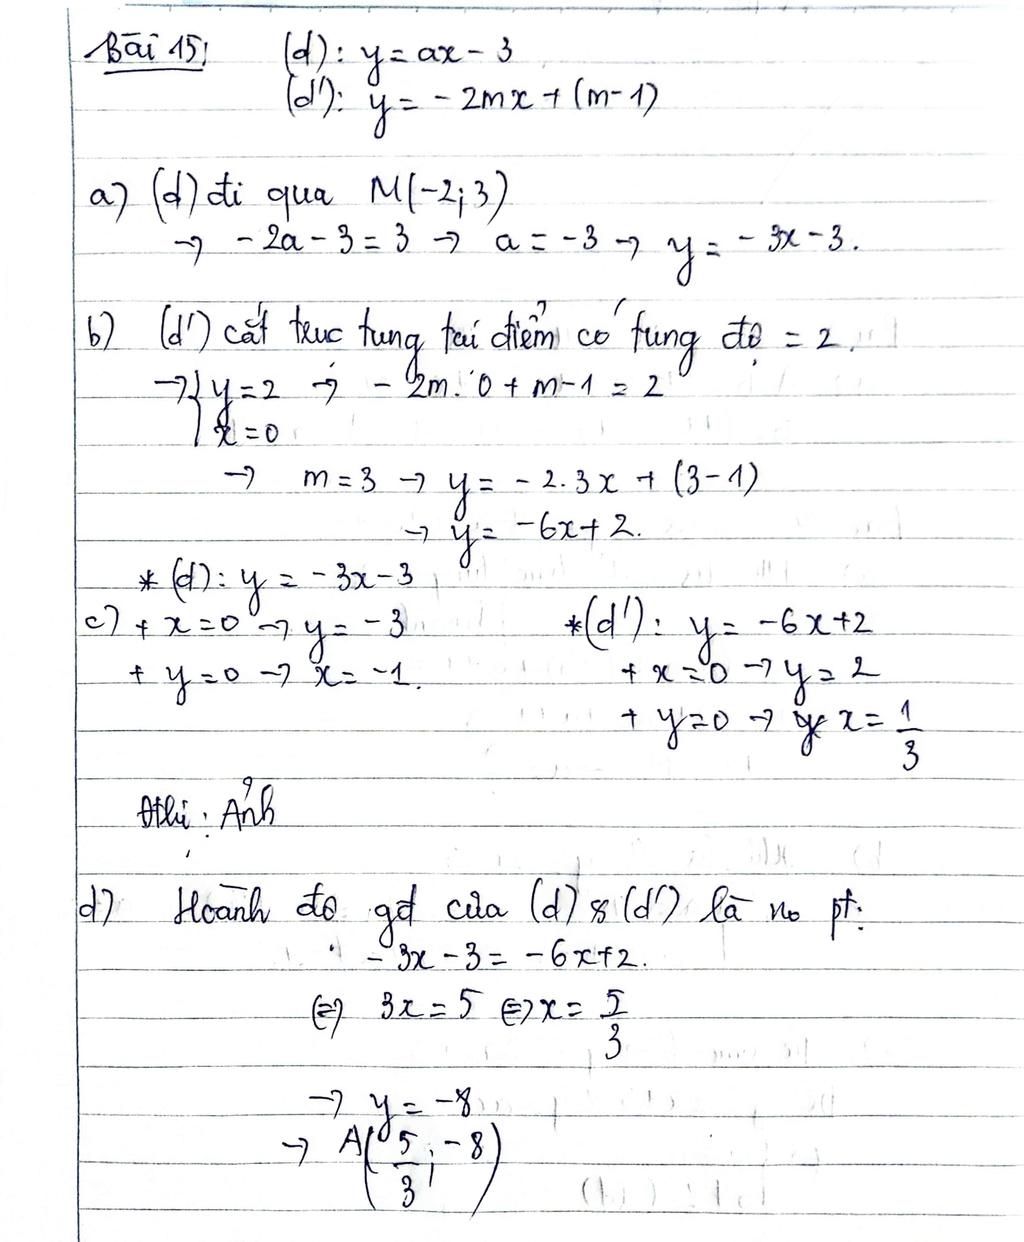 Bài 15: (d): y = ax - 3
(d'): y = - 2mx + (m-1)
a) (d) đi qua M(-2; 3)
→ - 2a - 3 = 3 → a = -3 → y = - 3x - 3.
b) (d') cắt trục tung tại điểm có tung độ = 2.
→ { y = 2 → - 2m. 0 + m - 1 = 2
x = 0
→ m = 3 → y = - 2.3x + (3-1)
→ y = -6x + 2.
* (d): y = -3x - 3
c) + x = 0 → y = -3 * (d'): y = -6x + 2
+ y = 0 → x = -1. + x = 0 → y = 2
+ y = 0 → x = 1/3
Đthị: Ảnh
d) Hoành độ gđ của (d) & (d') là no pt:
- 3x - 3 = - 6x + 2.
(=) 3x = 5 (=) x = 5/3
→ y = -8
→ A(5/3; -8)